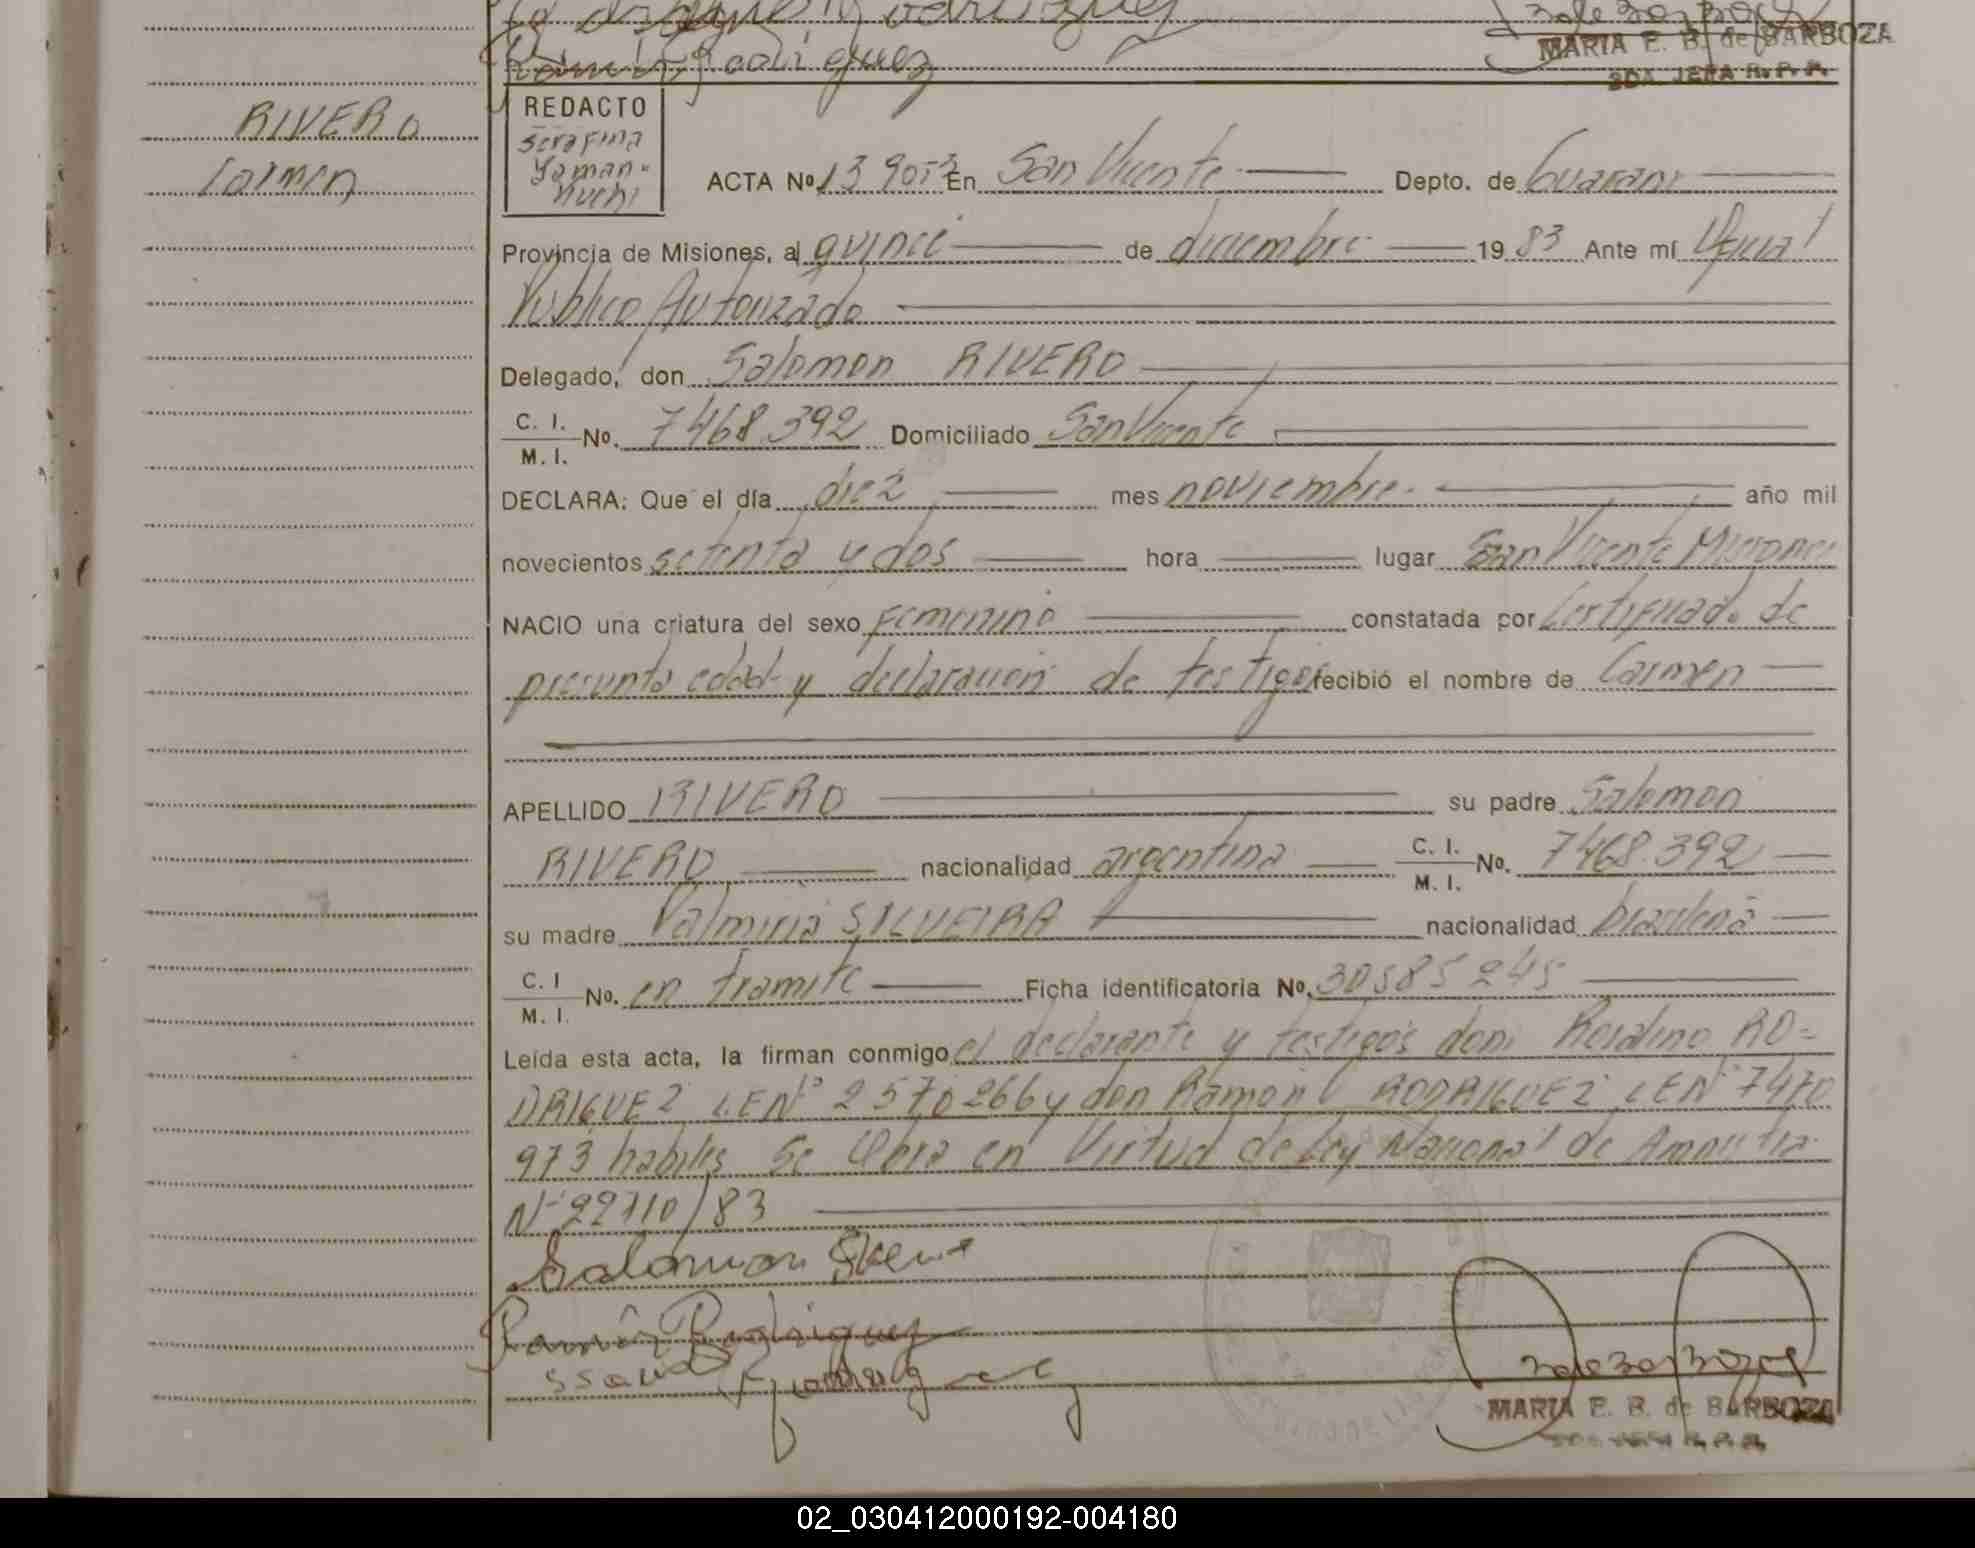 Rodriguez
MARIA E. B. de BARBOZA
2DA. JEFA R. P. P.
RIVERO
Carmen
REDACTO
Serafina
Yaman-
ACTA Nº 13 En San Vicente Depto. de Guarani
Provincia de Misiones, al quince de diciembre 19 83 Ante mí Oficial
Publico Autorizado
Delegado, don Salomon RIVERO
C. I.
M. I. No. 7468.392 Domiciliado San Vicente
DECLARA: Que el día diez mes noviembre año mil
novecientos setenta y dos hora lugar San Vicente Misiones
NACIO una criatura del sexo Femenino constatada por Certificado de
presunta edad y declaracion de testigos recibió el nombre de Carmen
APELLIDO RIVERO su padre Salomon
RIVERO nacionalidad argentina C. I.
M. I. No. 7468.392
su madre Valmiria SILVEIRA nacionalidad brasileña
C. I
M. I. No. en tramite Ficha identificatoria No. 30585245
Leída esta acta, la firman conmigo el declarante y testigos don Rosalino RO=
DRIGUEZ LE Nº 2570266 y don Ramon RODRIGUEZ LE Nº 7470
973 habiles Se Labra en Virtud de Ley Nacional de Amnistia
Nº 22710/83
Salomon
Ramón Rodriguez
MARIA E. B. de BARBOZA
02_030412000192-004180